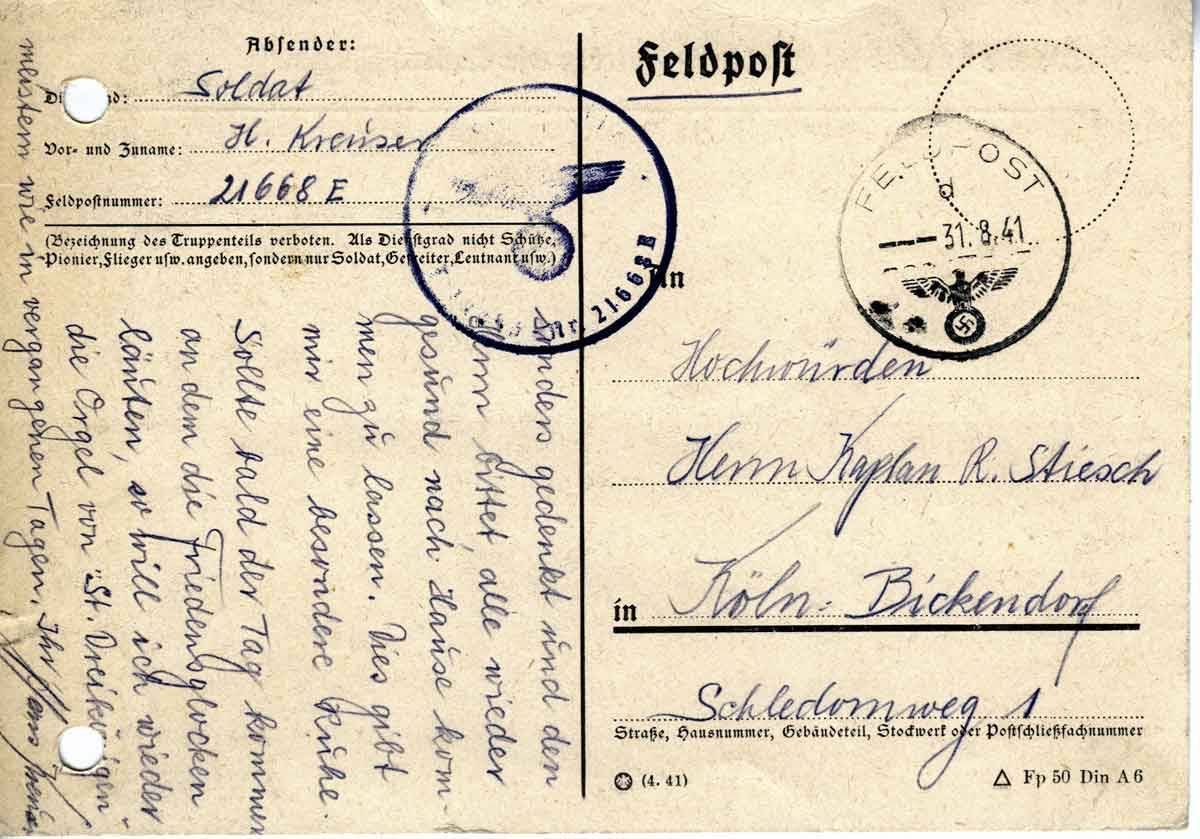 Absender:
Soldat
H. Kreuser
Vor- und Zuname:
Feldpostnummer: 21668 E
(Bezeichnung des Truppenteils verboten. Als Dienstgrad nicht Schütze,
Pionier, Flieger usw. angeben, sondern nur Soldat, Gefreiter, Leutnant usw.)
Nr. 21668E
gedenkt und den
bittet, alle wieder
gesund nach Hause kom-
men zu lassen. Dies gibt
mir eine besondere Ruhe.
Sollte bald der Tag kommen
an dem die Friedensglocken
läuten, so will ich wieder
die Orgel von "St. Dreikönigen
meistern wie in vergangenen Tagen. Ihr Hans Kreuser
Feldpost
FELDPOST
d
31.8.41
An
Hochwürden
Herrn Kaplan R. Stiesch
in Köln-Bickendorf
Schledornweg 1
Straße, Hausnummer, Gebäudeteil, Stockwerk oder Postschließfachnummer
(4. 41)
Fp 50 Din A 6